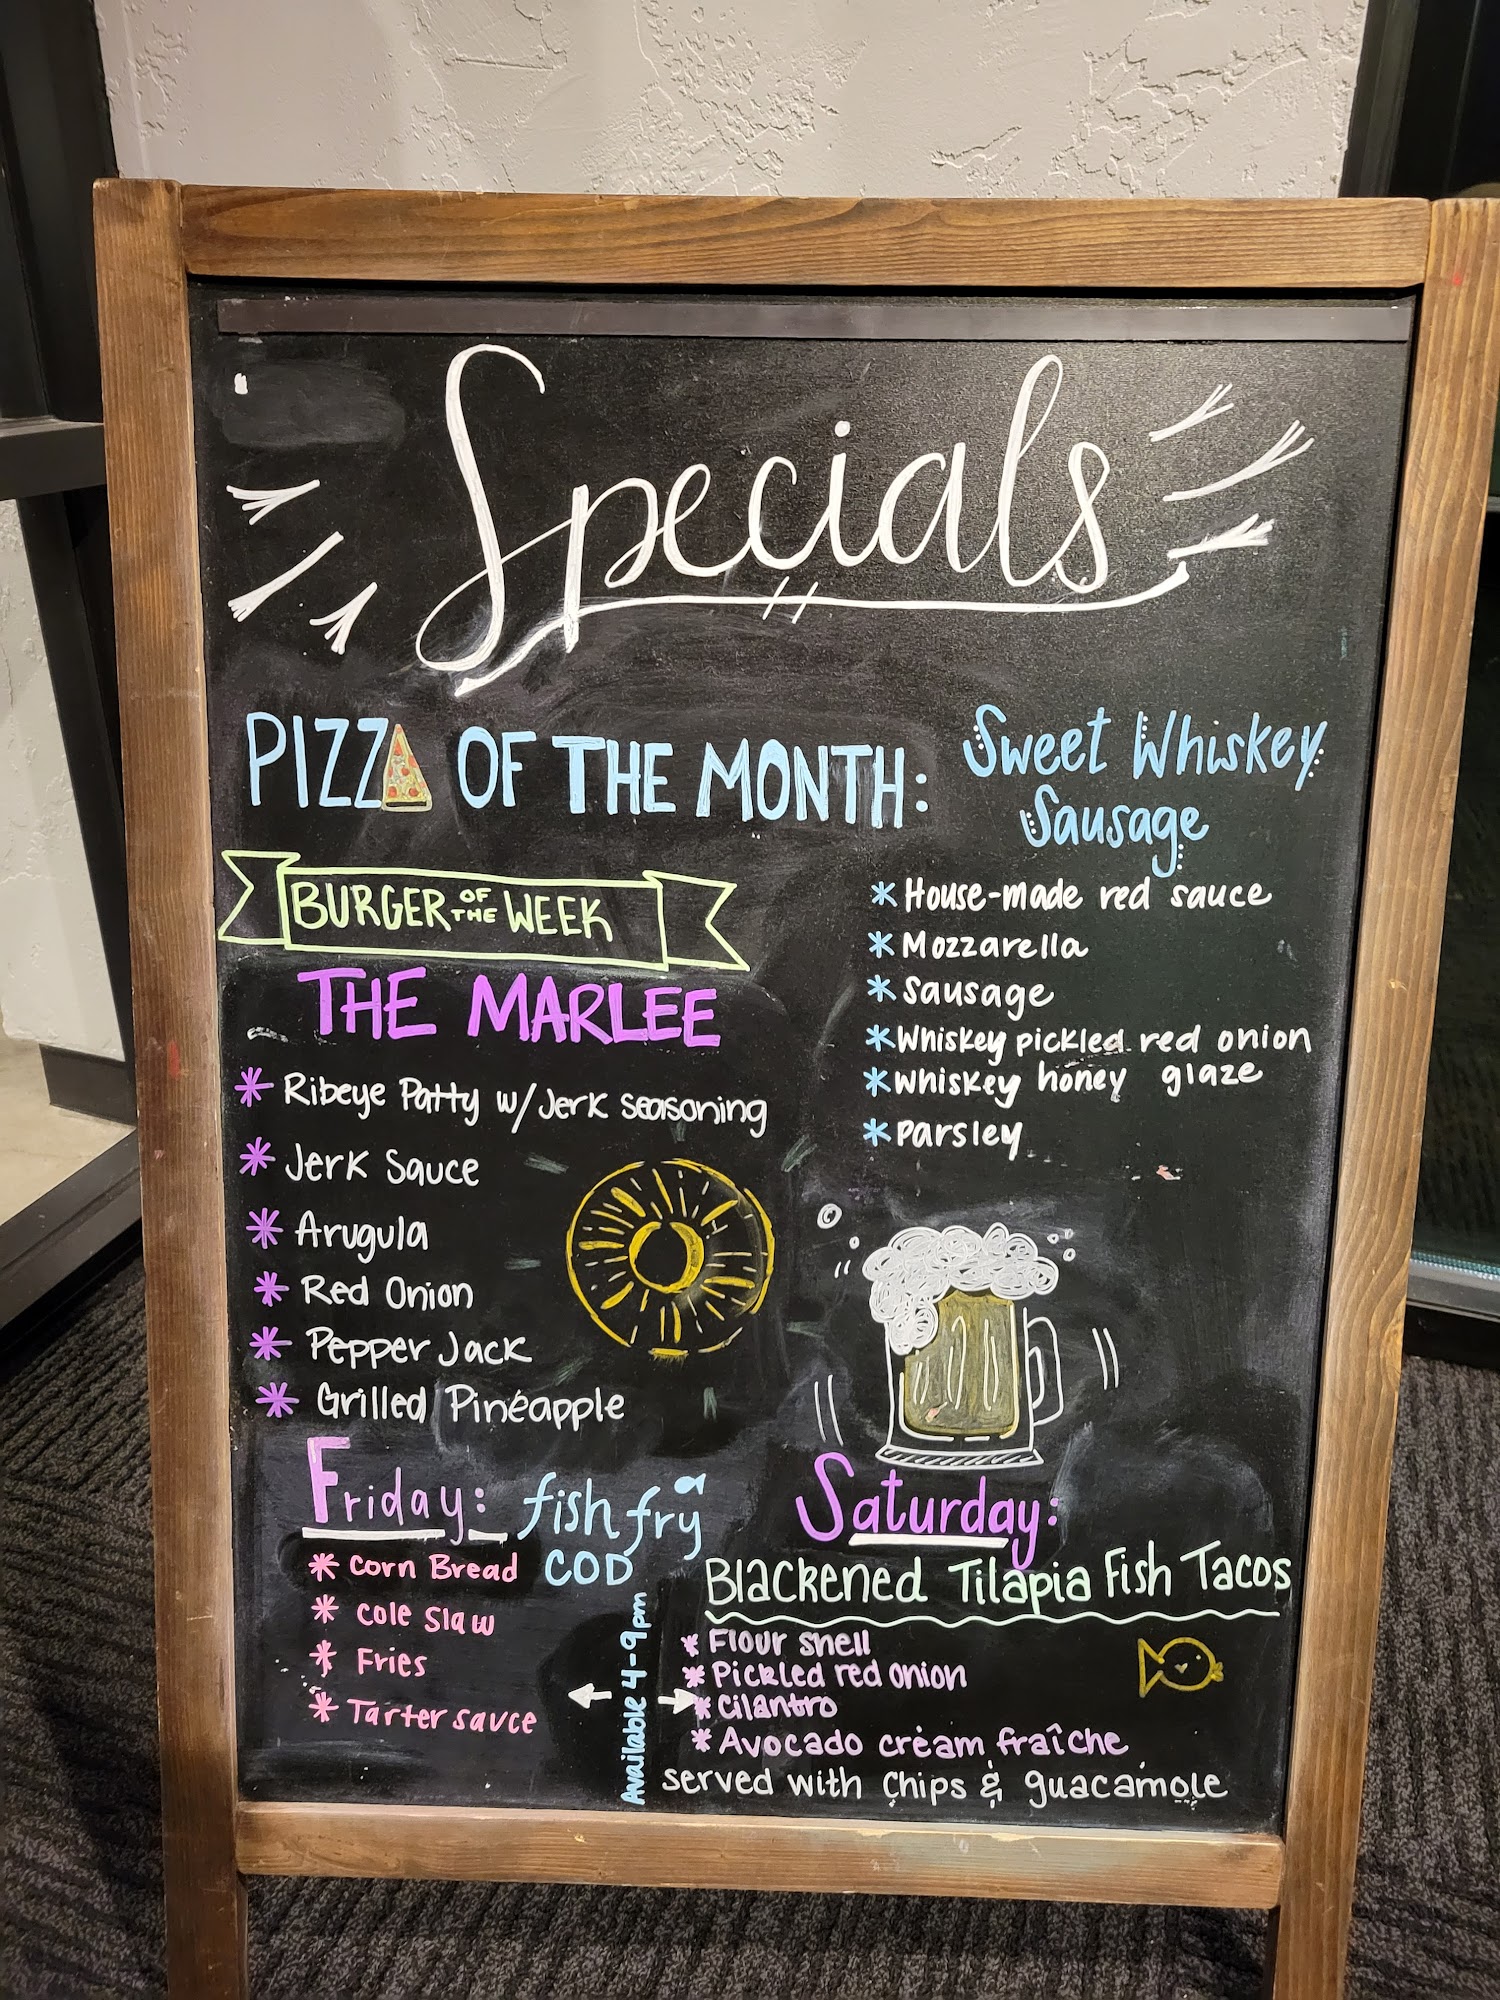 Specials
PIZZA OF THE MONTH:
Sweet Whiskey
Sausage
* House-made red sauce
* Mozzarella
* Sausage
* Whiskey pickled red onion
* Whiskey honey glaze
* Parsley
BURGER OF THE WEEK
THE MARLEE
* Ribeye Patty w/Jerk seasoning
* Jerk Sauce
* Arugula
* Red Onion
* Pepper Jack
* Grilled Pineapple
Friday: fish fry
COD
* Corn Bread
* Cole Slaw
* Fries
* Tarter sauce
Available 4-9pm
Saturday:
Blackened Tilapia Fish Tacos
* Flour shell
* Pickled red onion
* Cilantro
* Avocado cream fraîche
served with chips & guacamole